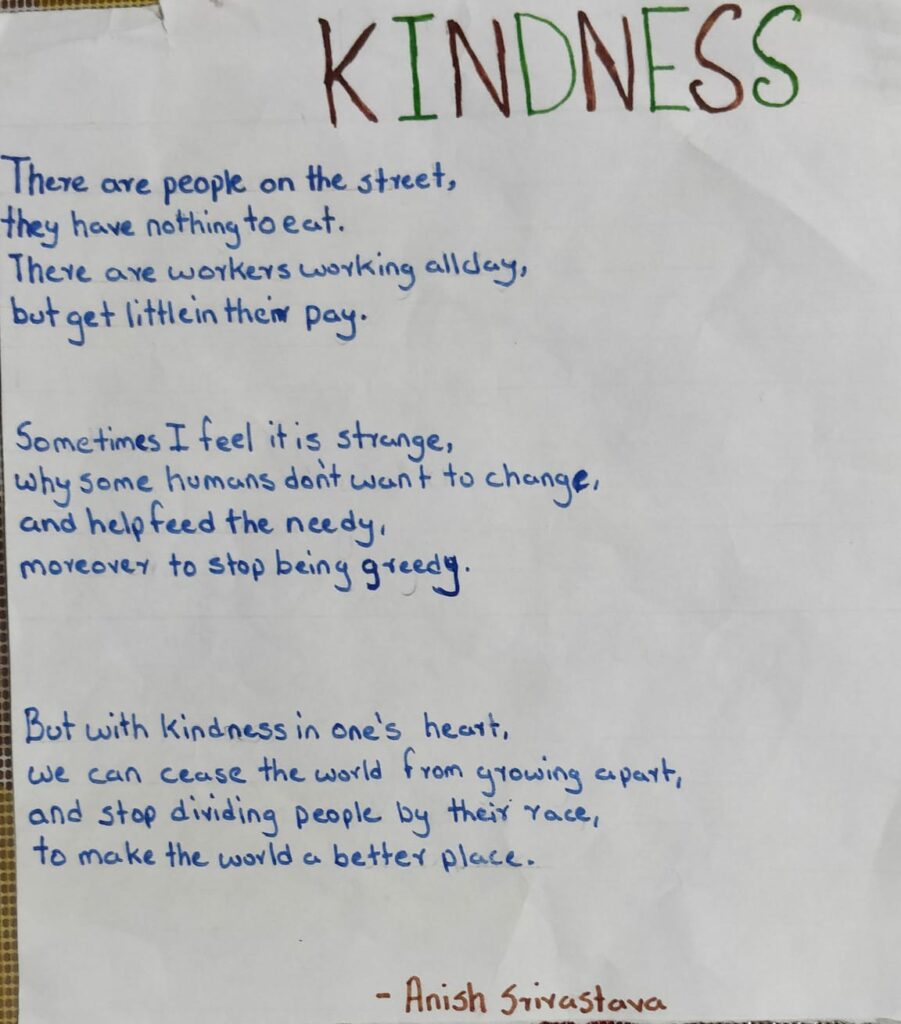 KINDNESS
There are people on the street,
they have nothing to eat.
There are workers working all day,
but get little in their pay.
Sometimes I feel it is strange,
why some humans don't want to change,
and help feed the needy,
moreover to stop being greedy.
But with kindness in one's heart,
we can cease the world from growing apart,
and stop dividing people by their race,
to make the world a better place.
- Anish Srivastava